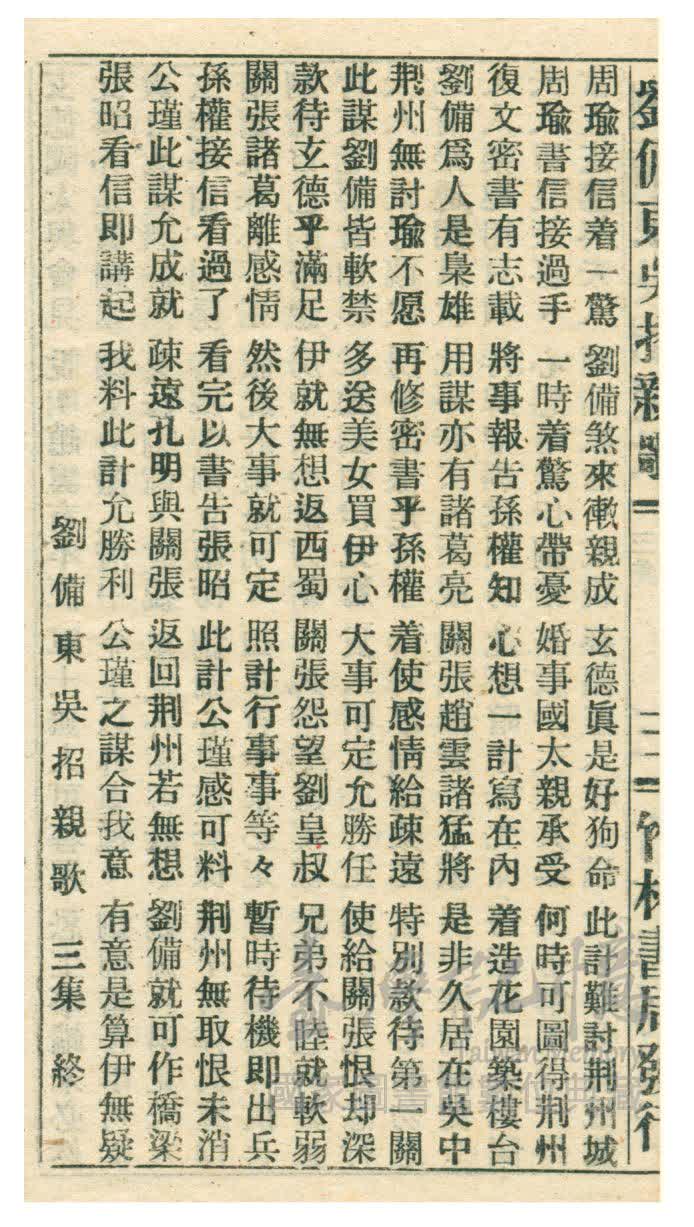 劉備東吳招親歌 三 竹林書局發行
周瑜接信着一驚 劉備煞來慒親成 玄德眞是好狗命 此計難討荆州城
周瑜書信接過手 一時着驚心帶憂 婚事國太親承受 何時可圖得荆州
復文密書有志載 將事報告孫權知 心想一計寫在內 着造花園築樓台
劉備爲人是梟雄 用謀亦有諸葛亮 關張趙雲諸猛將 是非久居在吳中
荆州無討瑜不愿 再修密書乎孫權 着使感情給疎遠 特別款待第一關
此謀劉備皆軟禁 多送美女買伊心 大事可定允勝任 使給關張恨却深
款待玄德乎滿足 伊就無想返西蜀 關張怨望劉皇叔 兄弟不陸就軟弱
關張諸葛離感情 然後大事就可定 照計行事事等々 暫時待機即出兵
孫權接信看過了 看完以書告張昭 此計公瑾感可料 荆州無取恨未消
公瑾此謀允成就 疎遠孔明與關張 返回荆州若無想 劉備就可作橋梁
張昭看信即講起 我料此計允勝利 公瑾之謀合我意 有意是算伊無疑
劉備東吳招親歌 三集 終
國家圖書館數位典藏